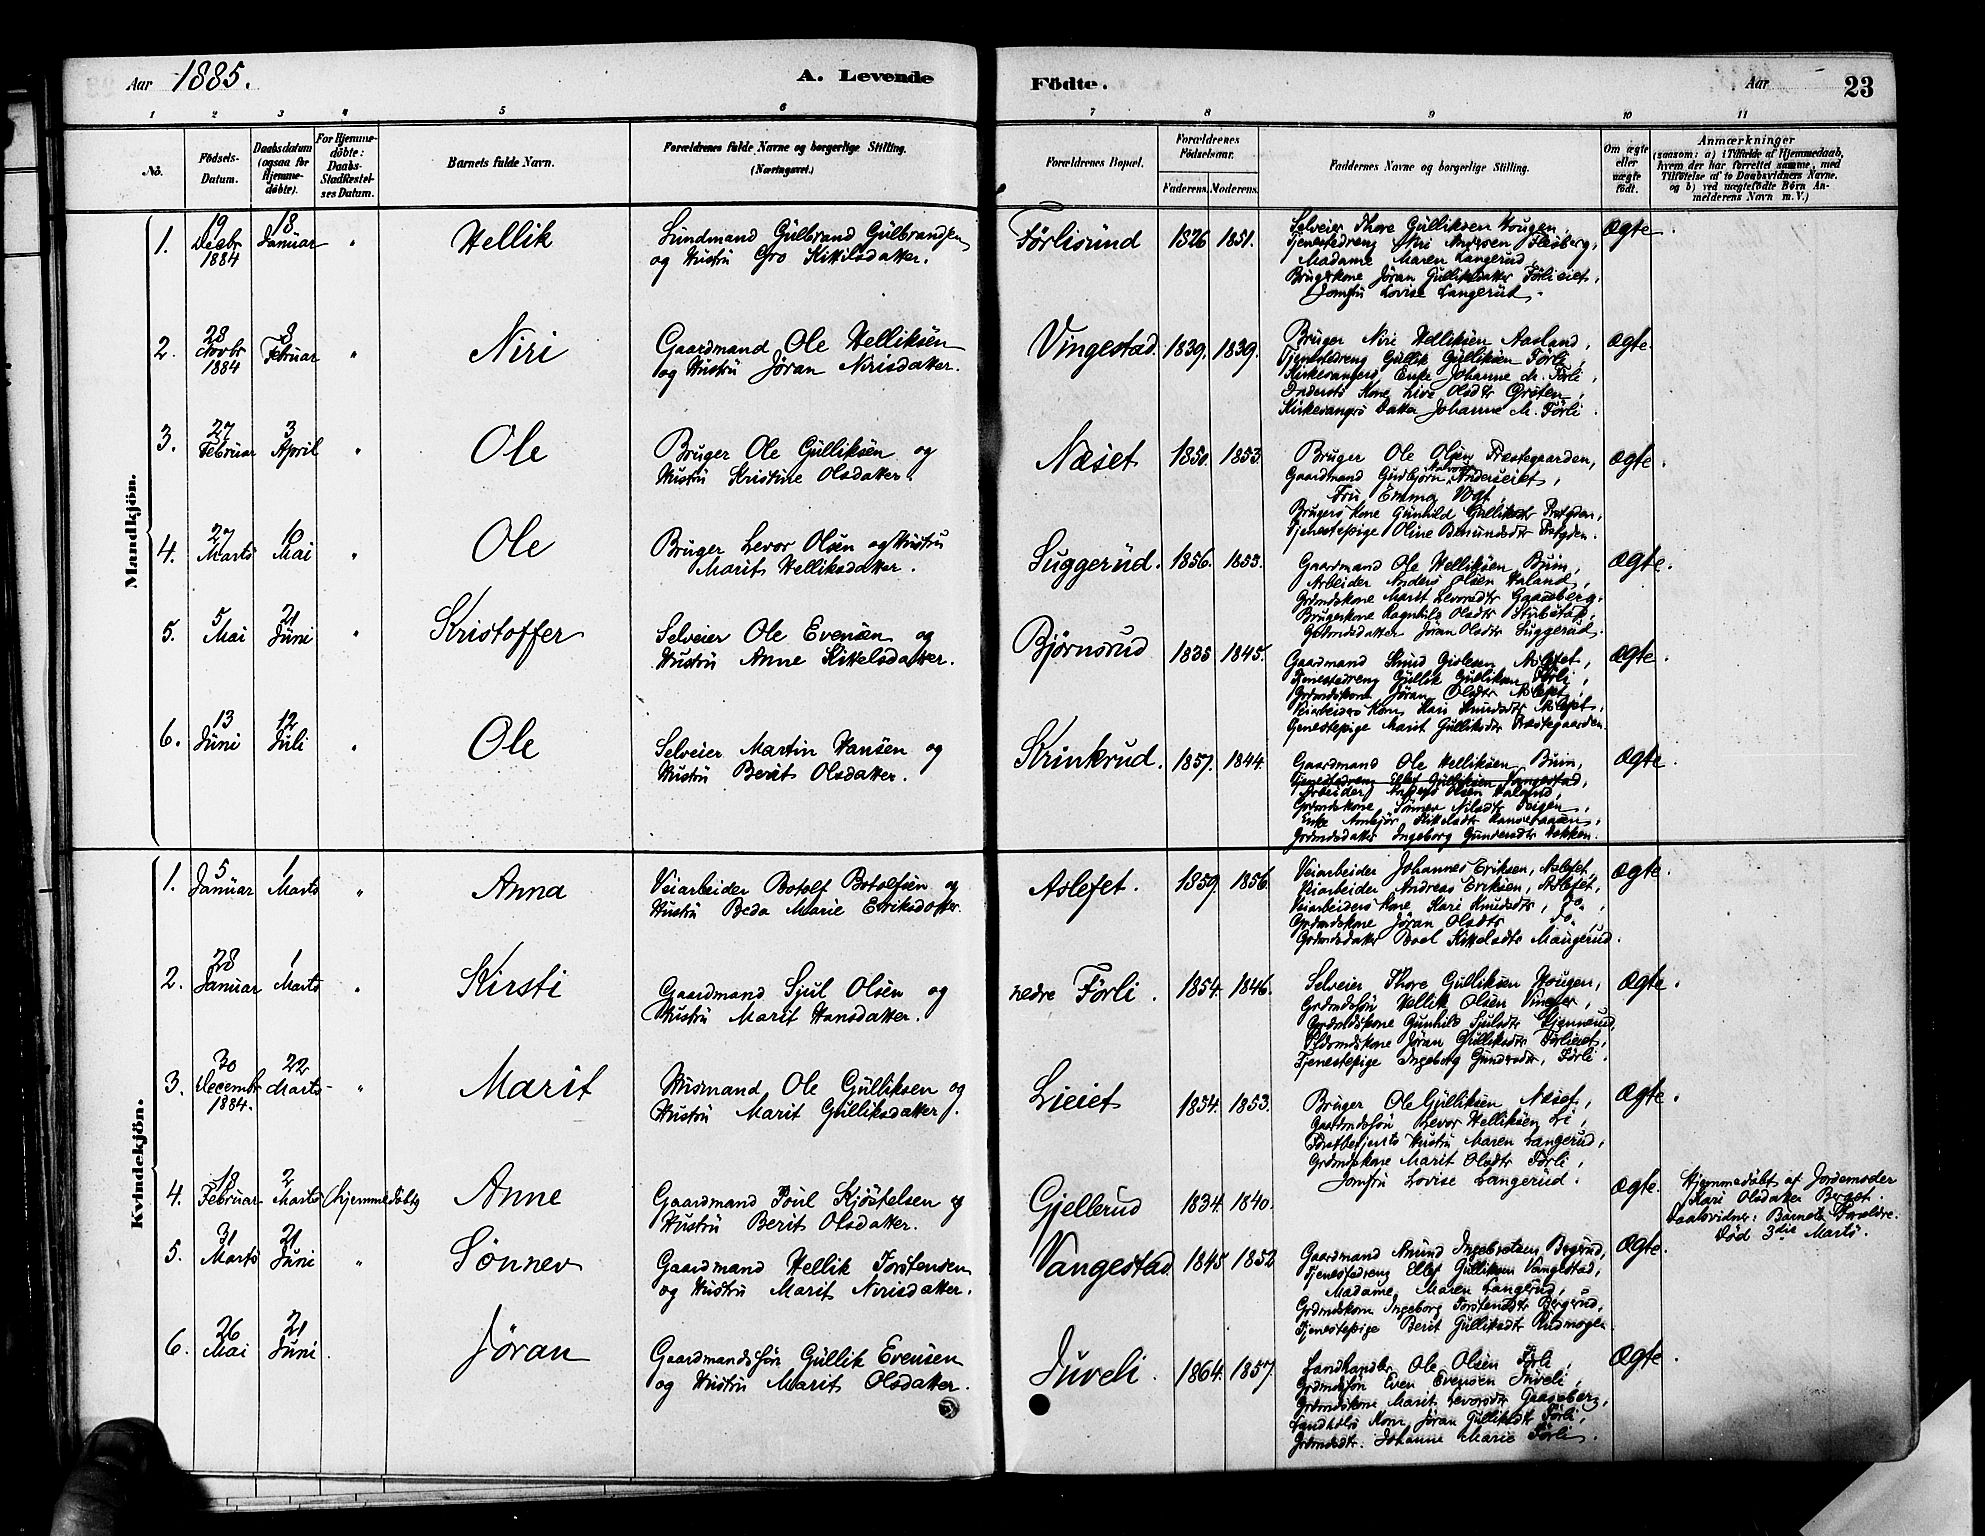 Aar 1885. A. Levende Födte. Aar 23
1 2 3 4 5 6 7 8 9 10 11
No. Födsels-Datum. Daabsdatum (ogsaa for Hjemme-döbte). For Hjemme-döbte: Daabs-Stadfæstel-ses Datum. Barnets fulde Navn. Forældrenes fulde Navne og borgerlige Stilling. (Næringsvei.) Forældrenes Bopæl. Forældrenes Födselsaar. Faderens. Moderens. Faddernes Navne og borgerlige Stilling. Om ægte eller uægte födt. Anmærkninger (saasom: a) i Tilfælde af Hjemmedaab, hvem der har forrettet samme, med Tilföielse af to Daabsvidners Navne, og b) ved uægtefödte Börn An-melderens Navn m.V.)
Mandkjön.
1. 19 Decbr 1884 18 Januar " Hellik
Gulbrand Gulbrandsen
og Hustru Gro Kittilsdatter.
Førlisund 1826 1851.
Selveier Thore Gulliksen Hougen,
Tjenestedreng Niri Andersen Flesberg,
Madame Maren Langerud,
Brugerkone Jøran Gulliksdatter Førlieiet,
Jomfru Lovise Langerud.
Ægte.
2. 28 Novbr 1884 8 Februar " Niri
Gaardmand Ole Helliksen
og Hustru Jøran Nirisdatter.
Vingestad. 1839. 1839.
Bruger Niri Helliksen Aasland,
Tjenestedreng Gullik Gulliksen Førli,
Kirkesangers Enke Johanne M. Førli,
Kone Live Olsdtr Grøten,
Kirkesangrs Datter Johanne M. Førli.
Ægte.
3. 27 Februar 3 April " Ole
Bruger Ole Gulliksen og
Hustru Kristine Olsdatter.
Næset 1850. 1853.
Bruger Ole Olsen Præstegaarden,
Gaardmand Gudbjørn Anderseiet,
Fru Emma Vogt,
Brugers Kone Gunhild Gulliksdtr Prstgden,
Tjenestepige Oline Prstgden.
Ægte.
4. 27 Marts Mai " Ole
Bruger Levor Olsen og Hustru
Marit Helliksdatter.
Suggerud. 1856. 1853.
Gaardmand Ole Helliksen Buin,
Arbeider Anders Olsen Haland,
Grdmdskone Marit Levorsdtr Gaaseberg,
Brugerkone Ragnhild Olsdtr
Grdmdsdatter Jøran Olsdtr Suggerud.
Ægte.
5. 5 Mai 21 Juni " Kristoffer
Selveier Ole Evensen og
Hustru Anne Kittelsdatter.
Bjørnsrud 1835 1845.
Gaardmand Knud Gislesen Aslefet,
Tjenestedreng Gullik Gulliksen Førli,
Grdmdskone Jøran Olsdtr Aslefet,
Veiarbeiders Kone Kari Knudsdtr Aslefet,
Tjenestepige Marit Gulliksdtr Præstegaarden.
Ægte.
6. 13 Juni 12 Juli " Ole
Selveier Martin Hansen og
Hustru Berit Olsdatter.
Krinkrud. 1857. 1844.
Gaardmand Ole Helliksen Buin,
Tjenestedreng Ellef Gulliksen Vangestad,
Arbeider Anders Olsen Haland,
Grdmdskone Sønnev Nilsdtr Teigen,
Enke Kittelsdtr
Grdmdsdatter Ingeborg Gundersdtr Bakken.
Ægte.
Kvindekjön.
1. 5 Januar 1 Marts " Anna
Veiarbeider Botolf Botolfsen og
Hustru Beda Marie Eriksdatter.
Aslefet. 1859. 1856.
Veiarbeider Johannes Eriksen, Aslefet,
Veiarbeider Andreas Eriksen, Aslefet,
Veiarbeiders Kone Kari Knudsdtr, Do.,
Grdmdskone Jøran Olsdtr Do.,
Grdmdsdatter Boel Kittelsdtr Maugerud.
Ægte.
2. 28 Januar 1 Marts " Kirsti
Gaardmand Sjul Olsen og
Hustru Marit Hansdatter.
nedre Førli. 1854. 1846.
Selveier Thore Gulliksen Hougen,
Grdmdssøn Hellik Olsen
Grdmdskone Gunhild Sjulsdtr
Jøran Gulliksdtr Førlieiet,
Tjenestepige Ingeborg Gundersdtr, Førli.
Ægte.
3. 30 Decembr 1884. 22 Marts " Marit
Husmand Ole Gulliksen og
Hustru Marit Gulliksdatter.
Lieiet 1854. 1853.
Bruger Ole Gulliksen Næset,
Gaardmdssøn Levor Helliksen Li,
Forstbetjents Hustru Maren Langerud,
Grdmdskone Marit Olsdtr Førli,
Jomfru Lovise Langerud.
Ægte.
4. 18 Februar 2 Marts (Hjemmedøbt) Anne
Gaardmand Poul Kjøstelsen og
Hustru Berit Olsdatter.
Gjellerud 1834 1840.
Ægte.
Hjemmedøbt af Jordemoder
Kari Olsdatter Berget.
Daabsvidner: Barnets Forældre.
Død 3die Marts.
5. 31 Marts 21 Juni " Sønnev
Gaardmand Hellik Torstensen
og Hustru Marit Nirisdatter.
Vangestad 1845 1852
Gaardmand Amund Ingebretsen Bergerud,
Tjenestedreng Ellef Gulliksen Vangestad,
Madame Maren Langerud,
Grdmdskone Ingeborg Torstensdtr Bergerud,
Tjenestepige Berit Gulliksdtr Rudmogen.
Ægte.
6. 26 Mai 21 Juni. Jøran
Gaardmandssøn Gullik Evensen
og Hustru Marit Olsdatter.
Juveli. 1864. 1857.
Landhandler Ole Olsen Førli,
Grdmdssøn Even Evensen Juveli,
Grdmdskone Marit Levorsdtr Gaaseberg,
Kone Jøran Gulliksdtr Førli,
Grdmdsdtr. Johanne Marie Førli.
Ægte.